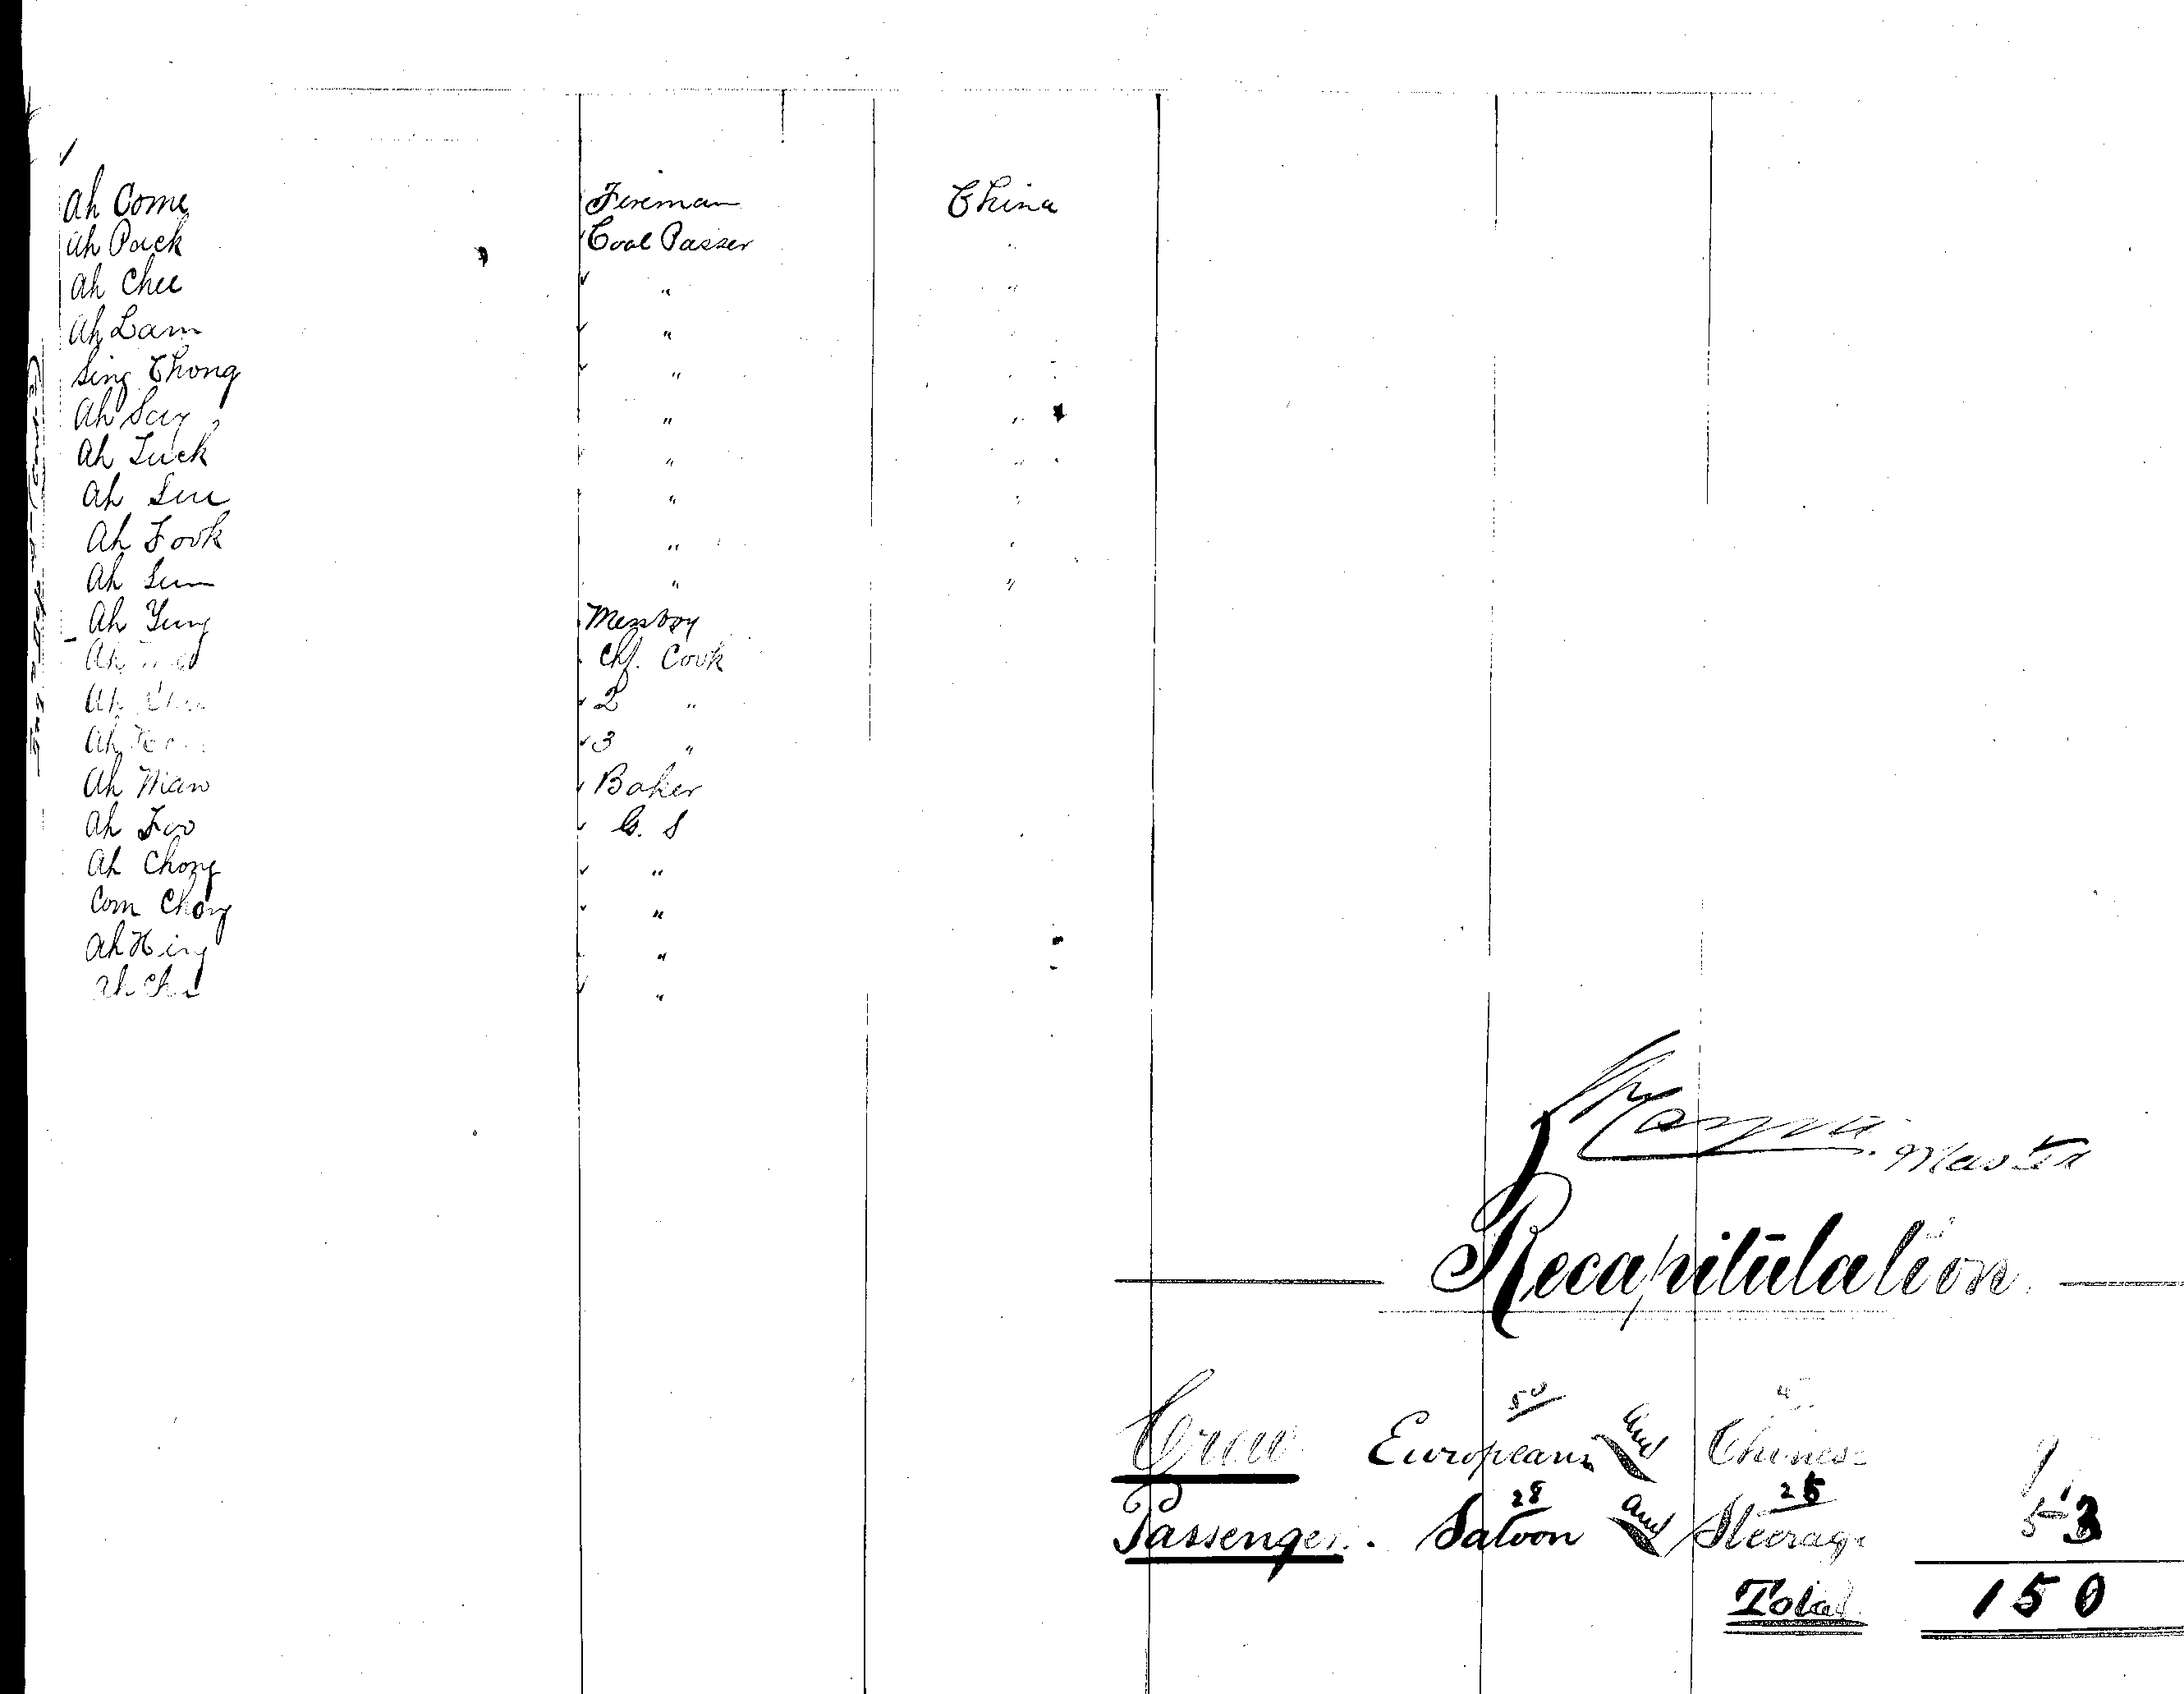 Ah Come Fireman China
Ah Pack Coal Passer "
Ah Chee " "
Ah Lam " "
Sing Chong " "
Ah Say " "
Ah Luck " "
Ah " "
Ah Fook " "
Ah " "
Ah Yung Messboy
Ah Chf. Cook
Ah 2 "
Ah 3 "
Ah Man Baker
Ah Foo G. S
Ah Chong "
Com Chong "
Ah Hing "
Ah "
Master
Recapitulation
50
Crew Europeans and Chinese
28 25
Passenger Saloon and Steerage 53
Total 150